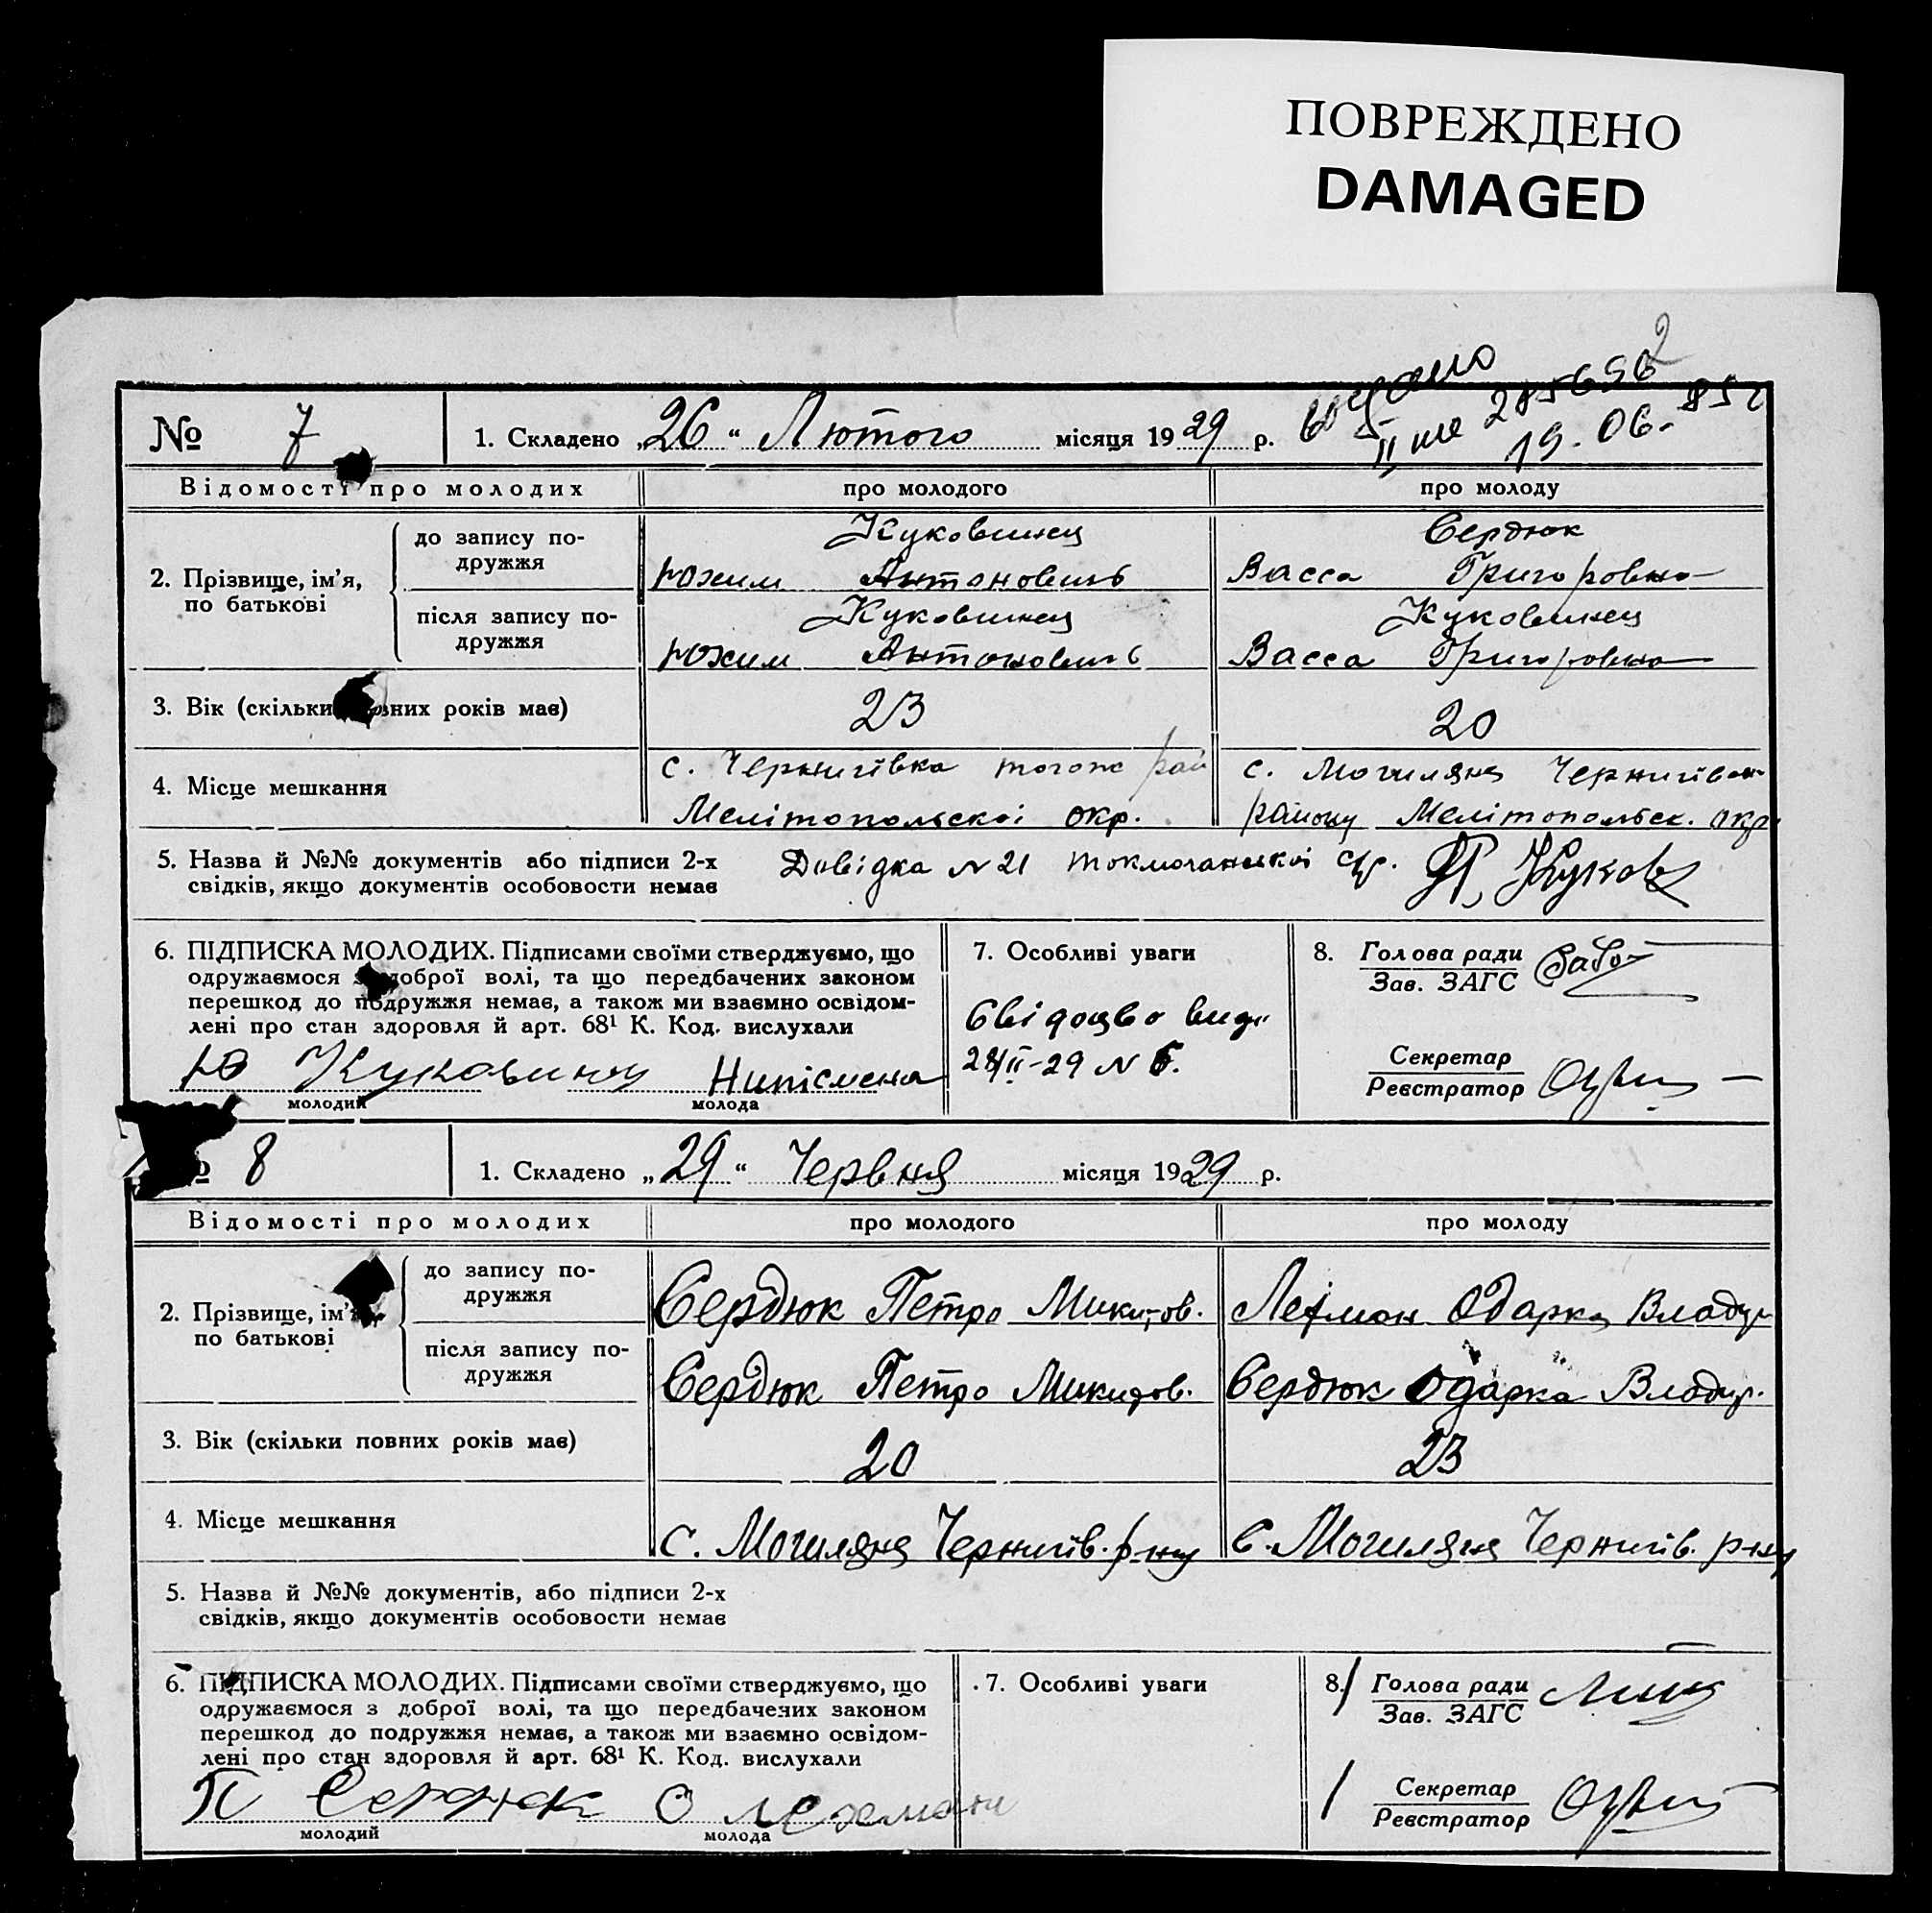 ПОВРЕЖДЕНО
DAMAGED
2
№ 7
1. Складено „26“ Лютого місяця 1929 р.
ІІ 285696
19.06.85 г
Відомості про молодих
про молодого
про молоду
2. Прізвище, ім’я, по батькові
до запису по-
дружжя
Куковинец
Юхим Антонович
Сердюк
Васса Григоровна
після запису по-
дружжя
Куковинец
Юхим Антонович
Куковинец
Васса Григоровна
3. Вік (скільки повних років має)
23
20
4. Місце мешкання
с. Чернигівка тогож рай
Мелітопольскоі окр.
с. Могиляна Чернигівсн
району Мелітопольск. окр
5. Назва й №№ документів або підписи 2-х
свідків, якщо документів особовости немає
Довідка N 21 токмочанскоі с/р.
6. ПІДПИСКА МОЛОДИХ. Підписами своїми стверджуємо, що
одружаємося з доброї волі, та що передбачених законом
перешкод до подружжя немає, а також ми взаємно освідом-
лені про стан здоровля й арт. 68¹ К. Код. вислухали
Ю Куковинец Нипісмена
молодий
молода
7. Особливі уваги
Свідоцво вид.
28/ІІ-29 N 6.
8. Голова ради
Зав. ЗАГС
Секретар
Реєстратор
№ 8
1. Складено „29“ Червня місяця 1929 р.
Відомості про молодих
про молодого
про молоду
2. Прізвище, ім’я,
по батькові
до запису по-
дружжя
Сердюк Петро Микитов.
Лехман Одарка Владир
після запису по-
дружжя
Сердюк Петро Микитов.
Сердюк Одарка Владир.
3. Вік (скільки повних років має)
20
23
4. Місце мешкання
с. Могиляна Чернигів. р-ну
с. Могиляна Чернигів. р-ну
5. Назва й №№ документів, або підписи 2-х
свідків, якщо документів особовости немає
6. ПІДПИСКА МОЛОДИХ. Підписами своїми стверджуємо, що
одружаємося з доброї волі, та що передбачених законом
перешкод до подружжя немає, а також ми взаємно освідом-
лені про стан здоровля й арт. 68¹ К. Код. вислухали
П Сердюк О Лехман
молодий
молода
7. Особливі уваги
8. Голова ради
Зав. ЗАГС
Секретар
Реєстратор